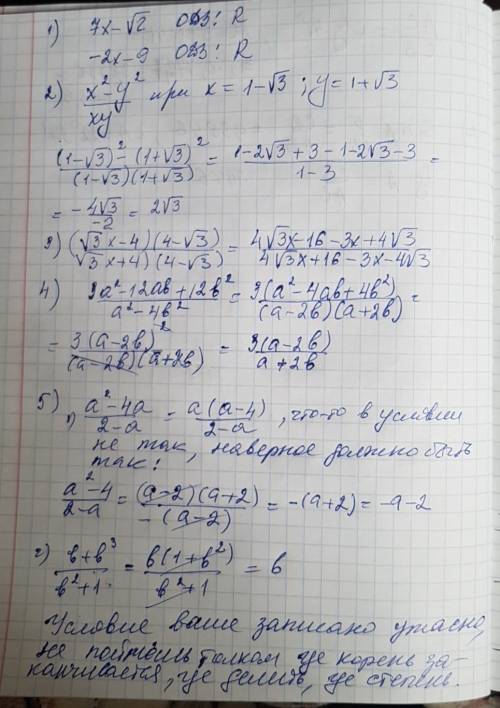 1) 7x-√2 ОДЗ: R
-2x-9 ОДЗ: R
2) (x²-y²)/(xy) при x = 1-√3 ; y = 1+√3
((1-√3)² - (1+√3)²)/((1-√3)(1+√3)) = (1-2√3+3-1-2√3-3)/(1-3) =
= (-4√3)/(-2) = 2√3
3) ((√3x-4)(4-√3))/((√3x+4)(4-√3)) = (4√3x-16-3x+4√3)/(4√3x+16-3x-4√3)
4) (3a²-12ab+12b²)/(a²-4b²) = (3(a²-4ab+4b²))/((a-2b)(a+2b)) =
= (3(a-2b)²)/((a-2b)(a+2b)) = (3(a-2b))/(a+2b)
5) 1) (a²-4a)/(2-a) = (a(a-4))/(2-a), что-то в условии
не так, наверное должно быть
так:
(a²-4)/(2-a) = ((a-2)(a+2))/(-(a-2)) = -(a+2) = -a-2
2) (b+b³)/(b²+1) = (b(1+b²))/(b²+1) = b
Условие ваше записано ужасно,
не поймёшь толком где корень за-
канчивается, где делить, где степень.